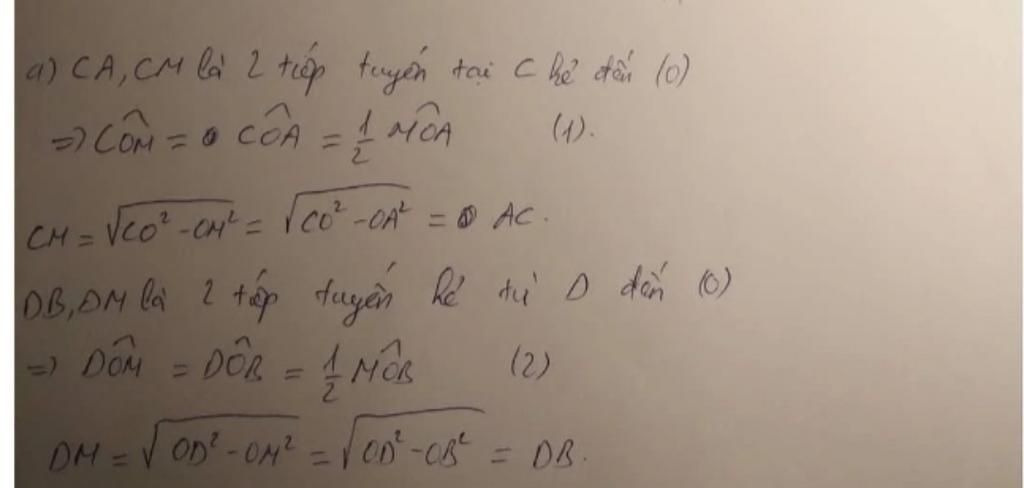 a) CA, CM là 2 tiếp tuyến tại C kẻ đến (O)
=> CÔM = CÔA = 1/2 MÔA (1).
CM = √(CO² - OM²) = √(CO² - OA²) = AC.
DB, DM là 2 tiếp tuyến kẻ từ D đến (O)
=> DÔM = DÔB = 1/2 MÔB (2)
DM = √(OD² - OM²) = √(OD² - OB²) = DB.